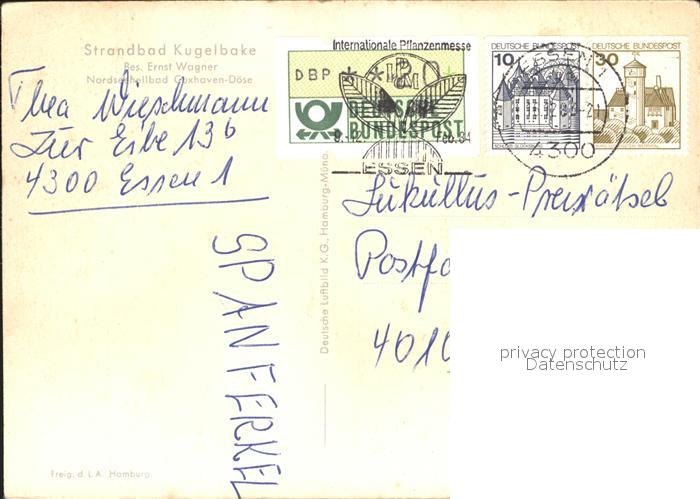 Strandbad Kugelbake
Bes. Ernst Wagner
Nordseeheilbad Cuxhaven-Döse
Thea Wieschmann
Zur Eibe 13b
4300 Essen 1
SPANFERKEL
Freig. d. L.A. Hamburg
Deutsche Luftbild K.G., Hamburg-
Internationale Pflanzenmesse
DBP
DEUTSCHE
BUNDESPOST
ESSEN
DEUTSCHE BUNDESPOST
10
DEUTSCHE BUNDESPOST
30
ESSEN 1
4300
Lukullus-Preisrätsel
Postfa
4010
privacy protection
Datenschutz